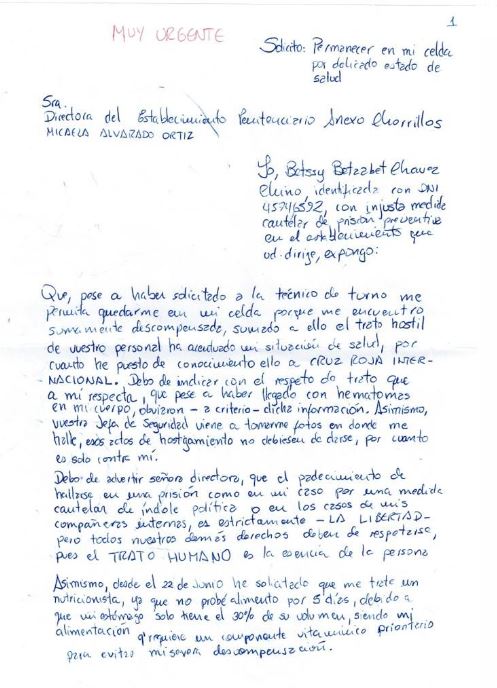 1
MUY URGENTE
Solicito: Permanecer en mi celda
por delicado estado de
salud
Sra.
Directora del Establecimiento Penitenciario Anexo Chorrillos
MICAELA ALVARADO ORTIZ
Yo, Betssy Betzabet Chavez
Chino, identificada con DNI
45746592, con injusta medida
cautelar de prisión preventiva
en el establecimiento que
ud. dirige, expongo:
Que, pese a haber solicitado a la técnico de turno me
permita quedarme en mi celda porque me encuentro
sumamente descompensada, sumado a ello el trato hostil
de vuestro personal ha acentuado mi situación de salud, por
cuanto he puesto de conocimiento ello a CRUZ ROJA INTER-
NACIONAL. Debo de indicar con el respeto de trato que
a mi respecta, que pese a haber llegado con hematomas
en mi cuerpo, obviaron - a criterio - dicha información. Asimismo,
vuestra Jefa de Seguridad viene a tomarme fotos en donde me
halle, esos actos de hostigamiento no debiesen de darse, por cuanto
es solo contra mí.
Debo de advertir señora directora, que el padecimiento de
hallarse en una prisión como en mi caso por una medida
cautelar de índole política o en los casos de mis
compañeras internas, es estrictamente - LA LIBERTAD-
pero todos nuestros demás derechos deben de respetarse,
pues el TRATO HUMANO es la esencia de la persona
Asimismo, desde el 22 de Junio he solicitado que me trate un
nutricionista, ya que no probé alimento por 5 días, debido a
que mi estómago solo tiene el 30% de su volumen, siendo mi
alimentación q' requiere un componente vitamínico prioritario
para evitar mi severa descompensación.